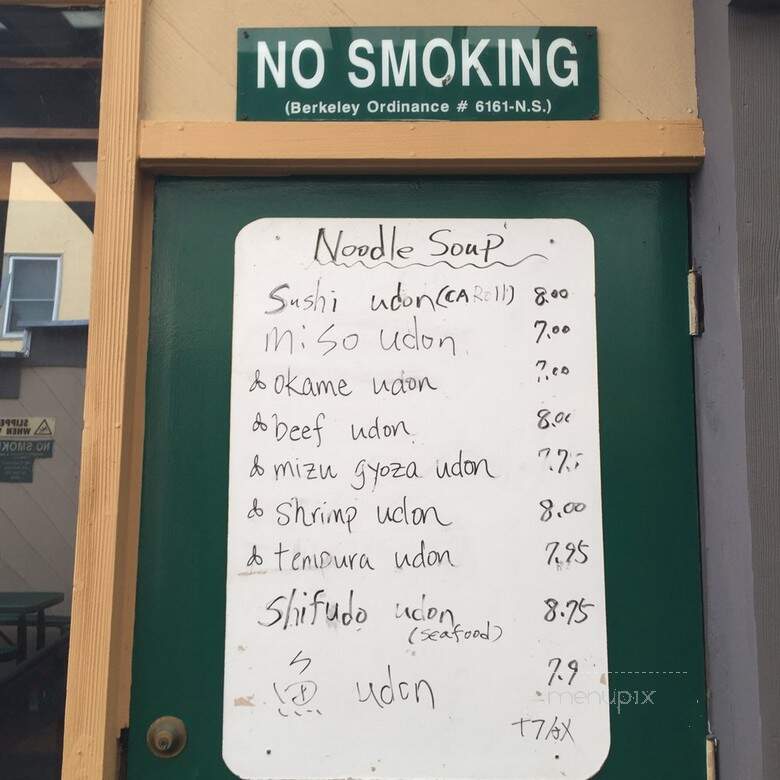 NO SMOKING
(Berkeley Ordinance # 6161-N.S.)
Noodle Soup
Sushi udon (CA Roll) 8.00
miso udon 7.00
& okame udon 7.00
& beef udon 8.00
& mizu gyoza udon
& shrimp udon 8.00
& tempura udon 7.95
Shifudo udon 8.75
(seafood)
魚 udon 7.9
+Tax
menupix
NO SMOKING